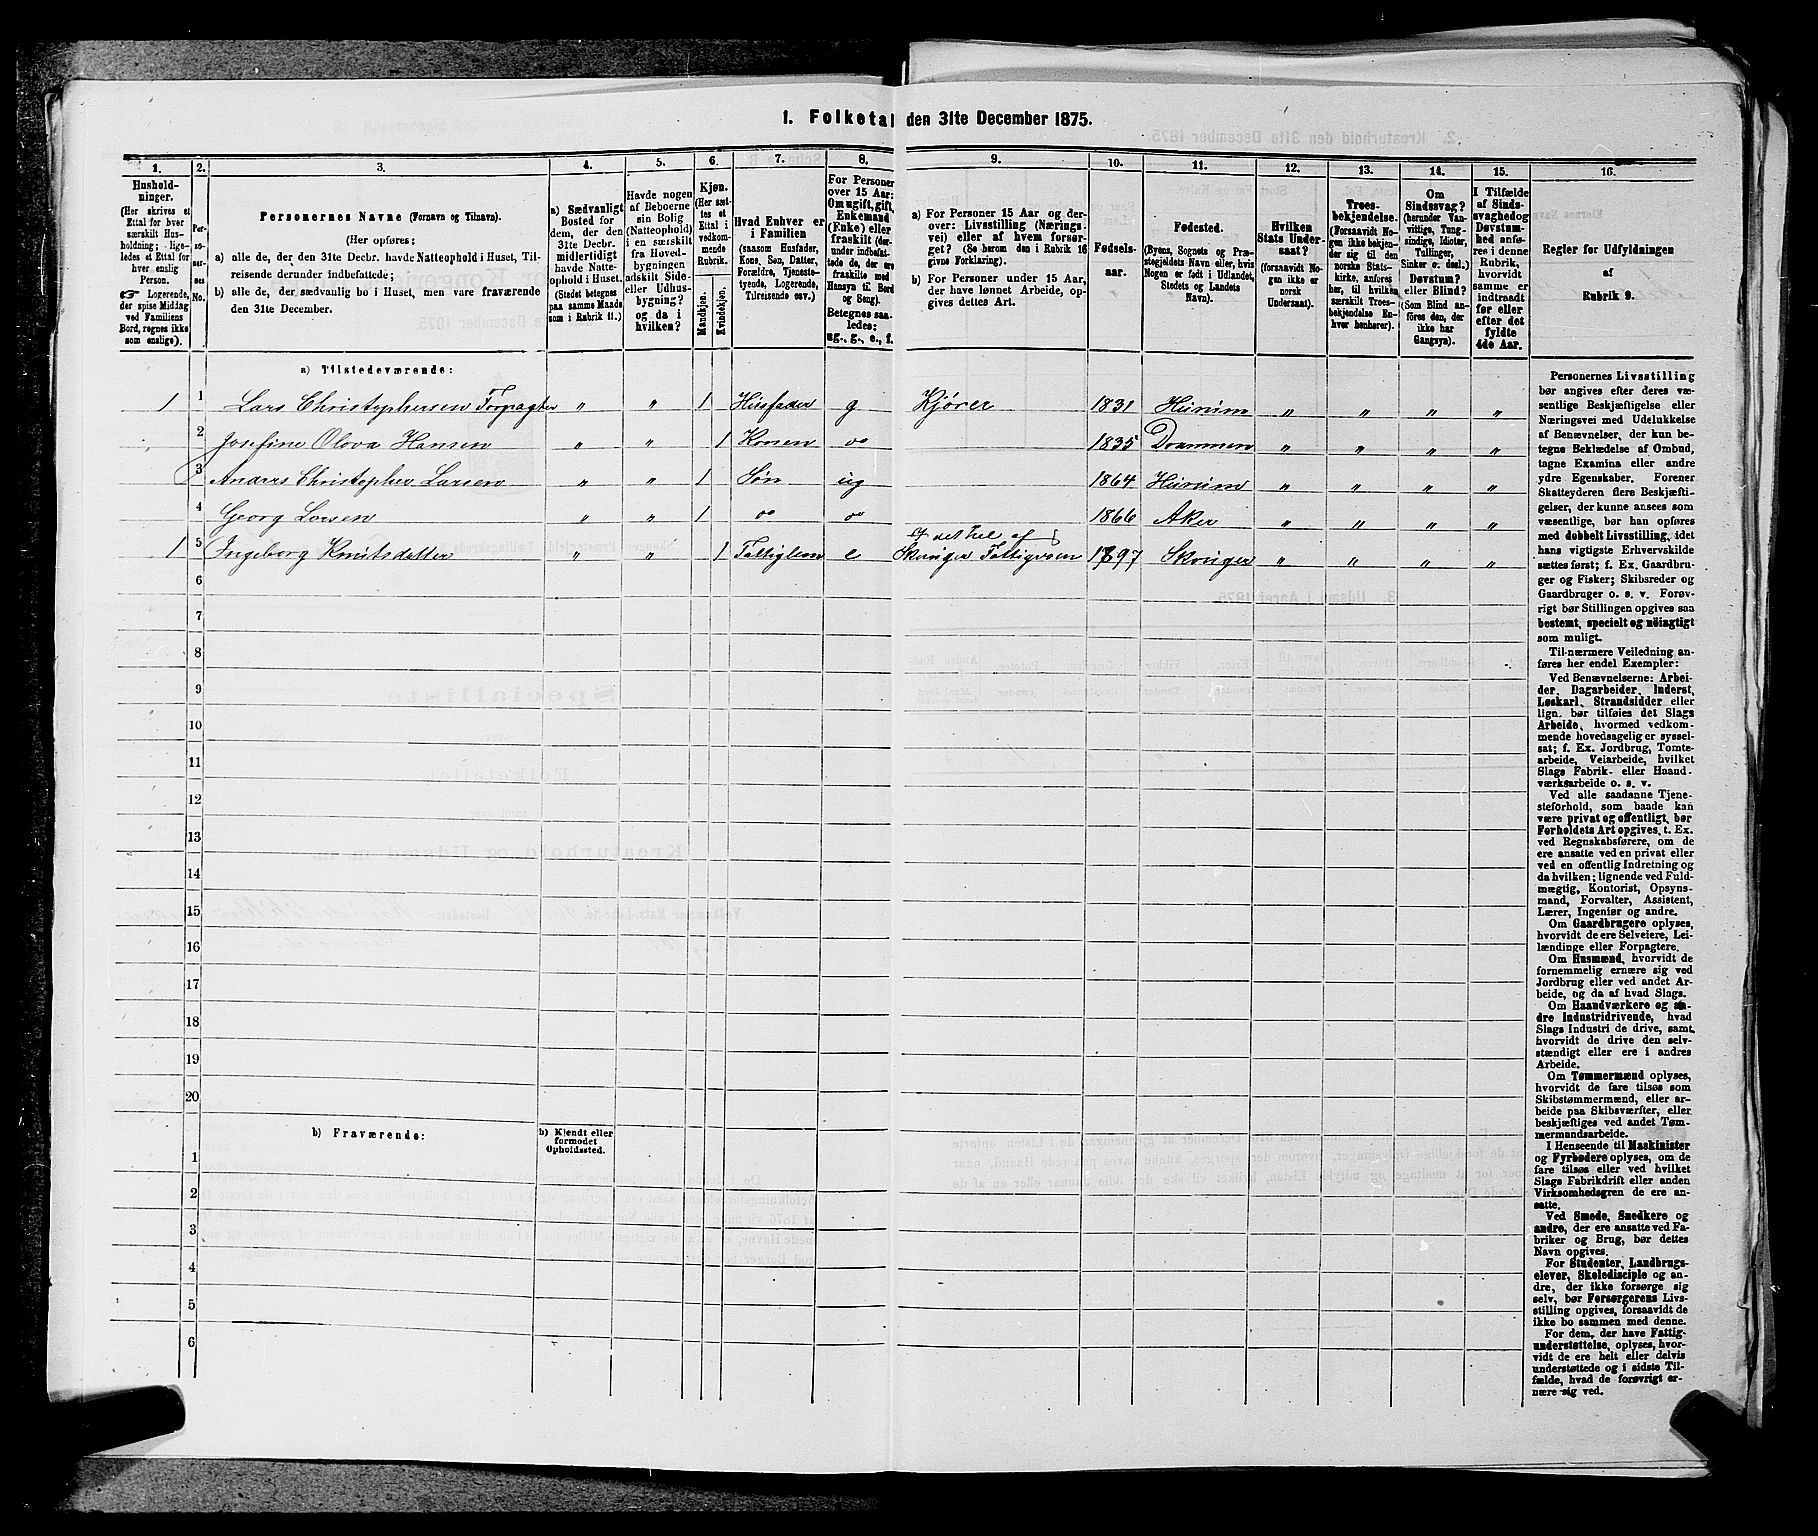 1. Folketal den 31te December 1875.
1. 2. 3. 4. 5. 6. 7. 8. 9. 10. 11. 12. 13. 14. 15. 16.
Hushold-
ninger.
(Her skrives et
Ettal for hver
særskilt Hus-
holdning; lige-
ledes et Ettal for
hver enslig
Person.
☞ Logerende,
der spise Middag
ved Familiens
Bord, regnes ikke
som enslige).
Per-
so-
ner-
nes
No.
Personernes Navne (Fornavn og Tilnavn).
(Her opføres:
a) alle de, der den 31te Decbr. havde Natteophold i Huset, Til-
reisende derunder indbefattede;
b) alle de, der sædvanlig bo i Huset, men vare fraværende
den 31te December.
a) Sædvanligt
Bosted for
dem, der den
31te Decbr.
midlertidigt
havde Natte-
ophold i Huset.
(Stedet betegnes
paa samme Maade
som i Rubrik 11.)
Havde nogen
af Beboerne
sin Bolig
(Natteophold)
i en særskilt
fra Hoved-
bygningen
adskilt Side-
eller Udhus-
bygning?
og da i
hvilken?
Kjøn.
(Her sæt-
tes et
Ettal i
vedkom-
mende
Rubrik.
Mandkjøn.
Kvindekjøn.
Hvad Enhver er
i Familien
(saasom Husfader,
Kone, Søn, Datter,
Forældre, Tjeneste-
tyende, Logerende,
Tilreisende osv.)
For Personer
over 15 Aar:
Om ugift, gift,
Enkemand
(Enke) eller
fraskilt (der-
under indbefat-
tede de, der ere
fraskilte med
Hensyn til Bord
og Seng).
Betegnes saa-
ledes:
ug., g., e., f.
a) For Personer 15 Aar og der-
over: Livsstilling (Nærings-
vei) eller af hvem forsør-
get? (Se herom den i Rubrik 16
givne Forklaring).
b) For Personer under 15 Aar,
der have lønnet Arbeide, op-
gives dettes Art.
Fødsels-
aar.
Fødested.
(Byens, Sognets og Præ-
stegjeldets Navn eller, hvis
Nogen er født i Udlandet,
Stedets og Landets
Navn).
Hvilken
Stats Under-
saat?
(forsaavidt No-
gen ikke er
norsk
Undersaat).
Troes-
bekjendelse.
(Forsaavidt No-
gen ikke bekjen-
der sig til den
norske Stats-
kirke, anføres
her, til hvilken
særskilt Troes-
bekjendelse En-
hver henhører).
Om
Sindssvag?
(herunder Van-
vittige, Tung-
sindige, Idioter,
Tullinger,
Sinker o. desl.)
Døvstum?
eller Blind?
(Som Blind an-
føres den, der
ikke har
Gangsyn).
I Tilfælde
af Sinds-
svaghed og
Døvstum-
hed anfø-
res i denne
Rubrik,
hvorvidt
samme er
indtraadt
før eller
efter det
fyldte
4de Aar.
Regler for Udfyldningen
af
Rubrik 9.
a) Tilstedeværende:
1 1 Lars Christophersen Forpagter " " 1 Husfader g Kjører 1831 Hurum " " " "
2 Josefine Olova Hansen " " 1 Konen do 1835 Drammen " " " "
3 Anders Christopher Larsen " " 1 Søn ug 1864 Hurum " " " "
4 Georg Larsen " " 1 do do 1866 Aker " " " "
1 5 Ingeborg Knutsdatter " " 1 Fattiglem e det hel af
Skouger Fattigvesen 1797 Skouger " " " "
6
7
8
9
10
11
12
13
14
15
16
17
18
19
20
b) Fraværende:
b) Kjendt eller
formodet
Opholdssted.
1
2
3
4
5
6
Personernes Livsstilling
bør angives efter deres væ-
sentlige Beskjæftigelse eller
Næringsvei med Udelukkelse
af Benævnelser, der kun be-
tegne Beklædelse af Ombud,
tagne Examina eller andre
ydre Egenskaber. Forener
Skatteyderen flere Beskjæfti-
gelser, der kunne ansees som
væsentlige, bør han opføres
med dobbelt Livsstilling, idet
hans vigtigste Erhvervskilde
sættes først; f. Ex. Gaardbru-
ger og Fisker; Skibsreder og
Gaardbruger o. s. v. Forøv-
rigt bør Stillingen opgives saa
bestemt, specielt og nøiagtigt
som muligt.
Til nærmere Veiledning an-
føres her endel Exempler:
Ved Benævnelserne: Arbei-
der, Dagarbeider, Inderst,
Løskarl, Strandsidder eller
lign. bør tilføies det Slags
Arbeide, hvormed vedkom-
mende hovedsagelig er syssel-
sat; f. Ex. Jordbrug, Tomte-
arbeide, Veiarbeide, hvilket
Slags Fabrik- eller Haand-
værksarbeide o. s. v.
Ved alle saadanne Tjene-
steforhold, som baade kan
være privat og offentligt, bør
Forholdets Art opgives, t. Ex.
ved Regnskabsførere, om de
ere ansatte ved en privat eller
ved en offentlig Indretning og
da hvilken; lignende ved Fuld-
mægtig, Kontorist, Opsyns-
mand, Forvalter, Assistent,
Lærer, Ingeniør og andre.
Om Gaardbrugere oplyses,
hvorvidt de ere Selveiere, Lei-
lændinge eller Forpagtere.
Om Husmænd, hvorvidt de
fornemmelig ernære sig ved
Jordbrug eller ved andet Ar-
beide, og da af hvad Slags.
Om Haandværkere og an-
dre Industridrivende, hvad
Slags Industri de drive, samt
hvorvidt de drive den selv-
stændigt eller ere i andres
Arbeide.
Om Tømmermænd oplyses,
hvorvidt de fare tilsøs som
Skibstømmermænd, eller ar-
beide paa Skibsværfter, eller
beskjæftiges ved andet Tøm-
mermandsarbeide.
I Henseende til Maskinister
og Fyrbødere oplyses, om de
fare tilsøs eller ved hvilket
Slags Fabrikdrift eller anden
Virksomhedsgren de ere an-
satte.
Ved Smede, Snedkere og
andre, der ere ansatte ved Fa-
briker og Brug, bør dettes
Navn opgives.
For Studenter, Landbrugs-
elever, Skoledisciple og an-
dre, der ikke forsørge sig
selv, bør Forsørgerens Livs-
stilling opgives, forsaavidt de
ikke bo sammen med denne.
For dem, der have Fattig-
understøttelse, oplyses, hvor-
vidt de ere helt eller delvis
understøttede og i sidste Til-
fælde, hvad de forøvrigt er-
nære sig ved.